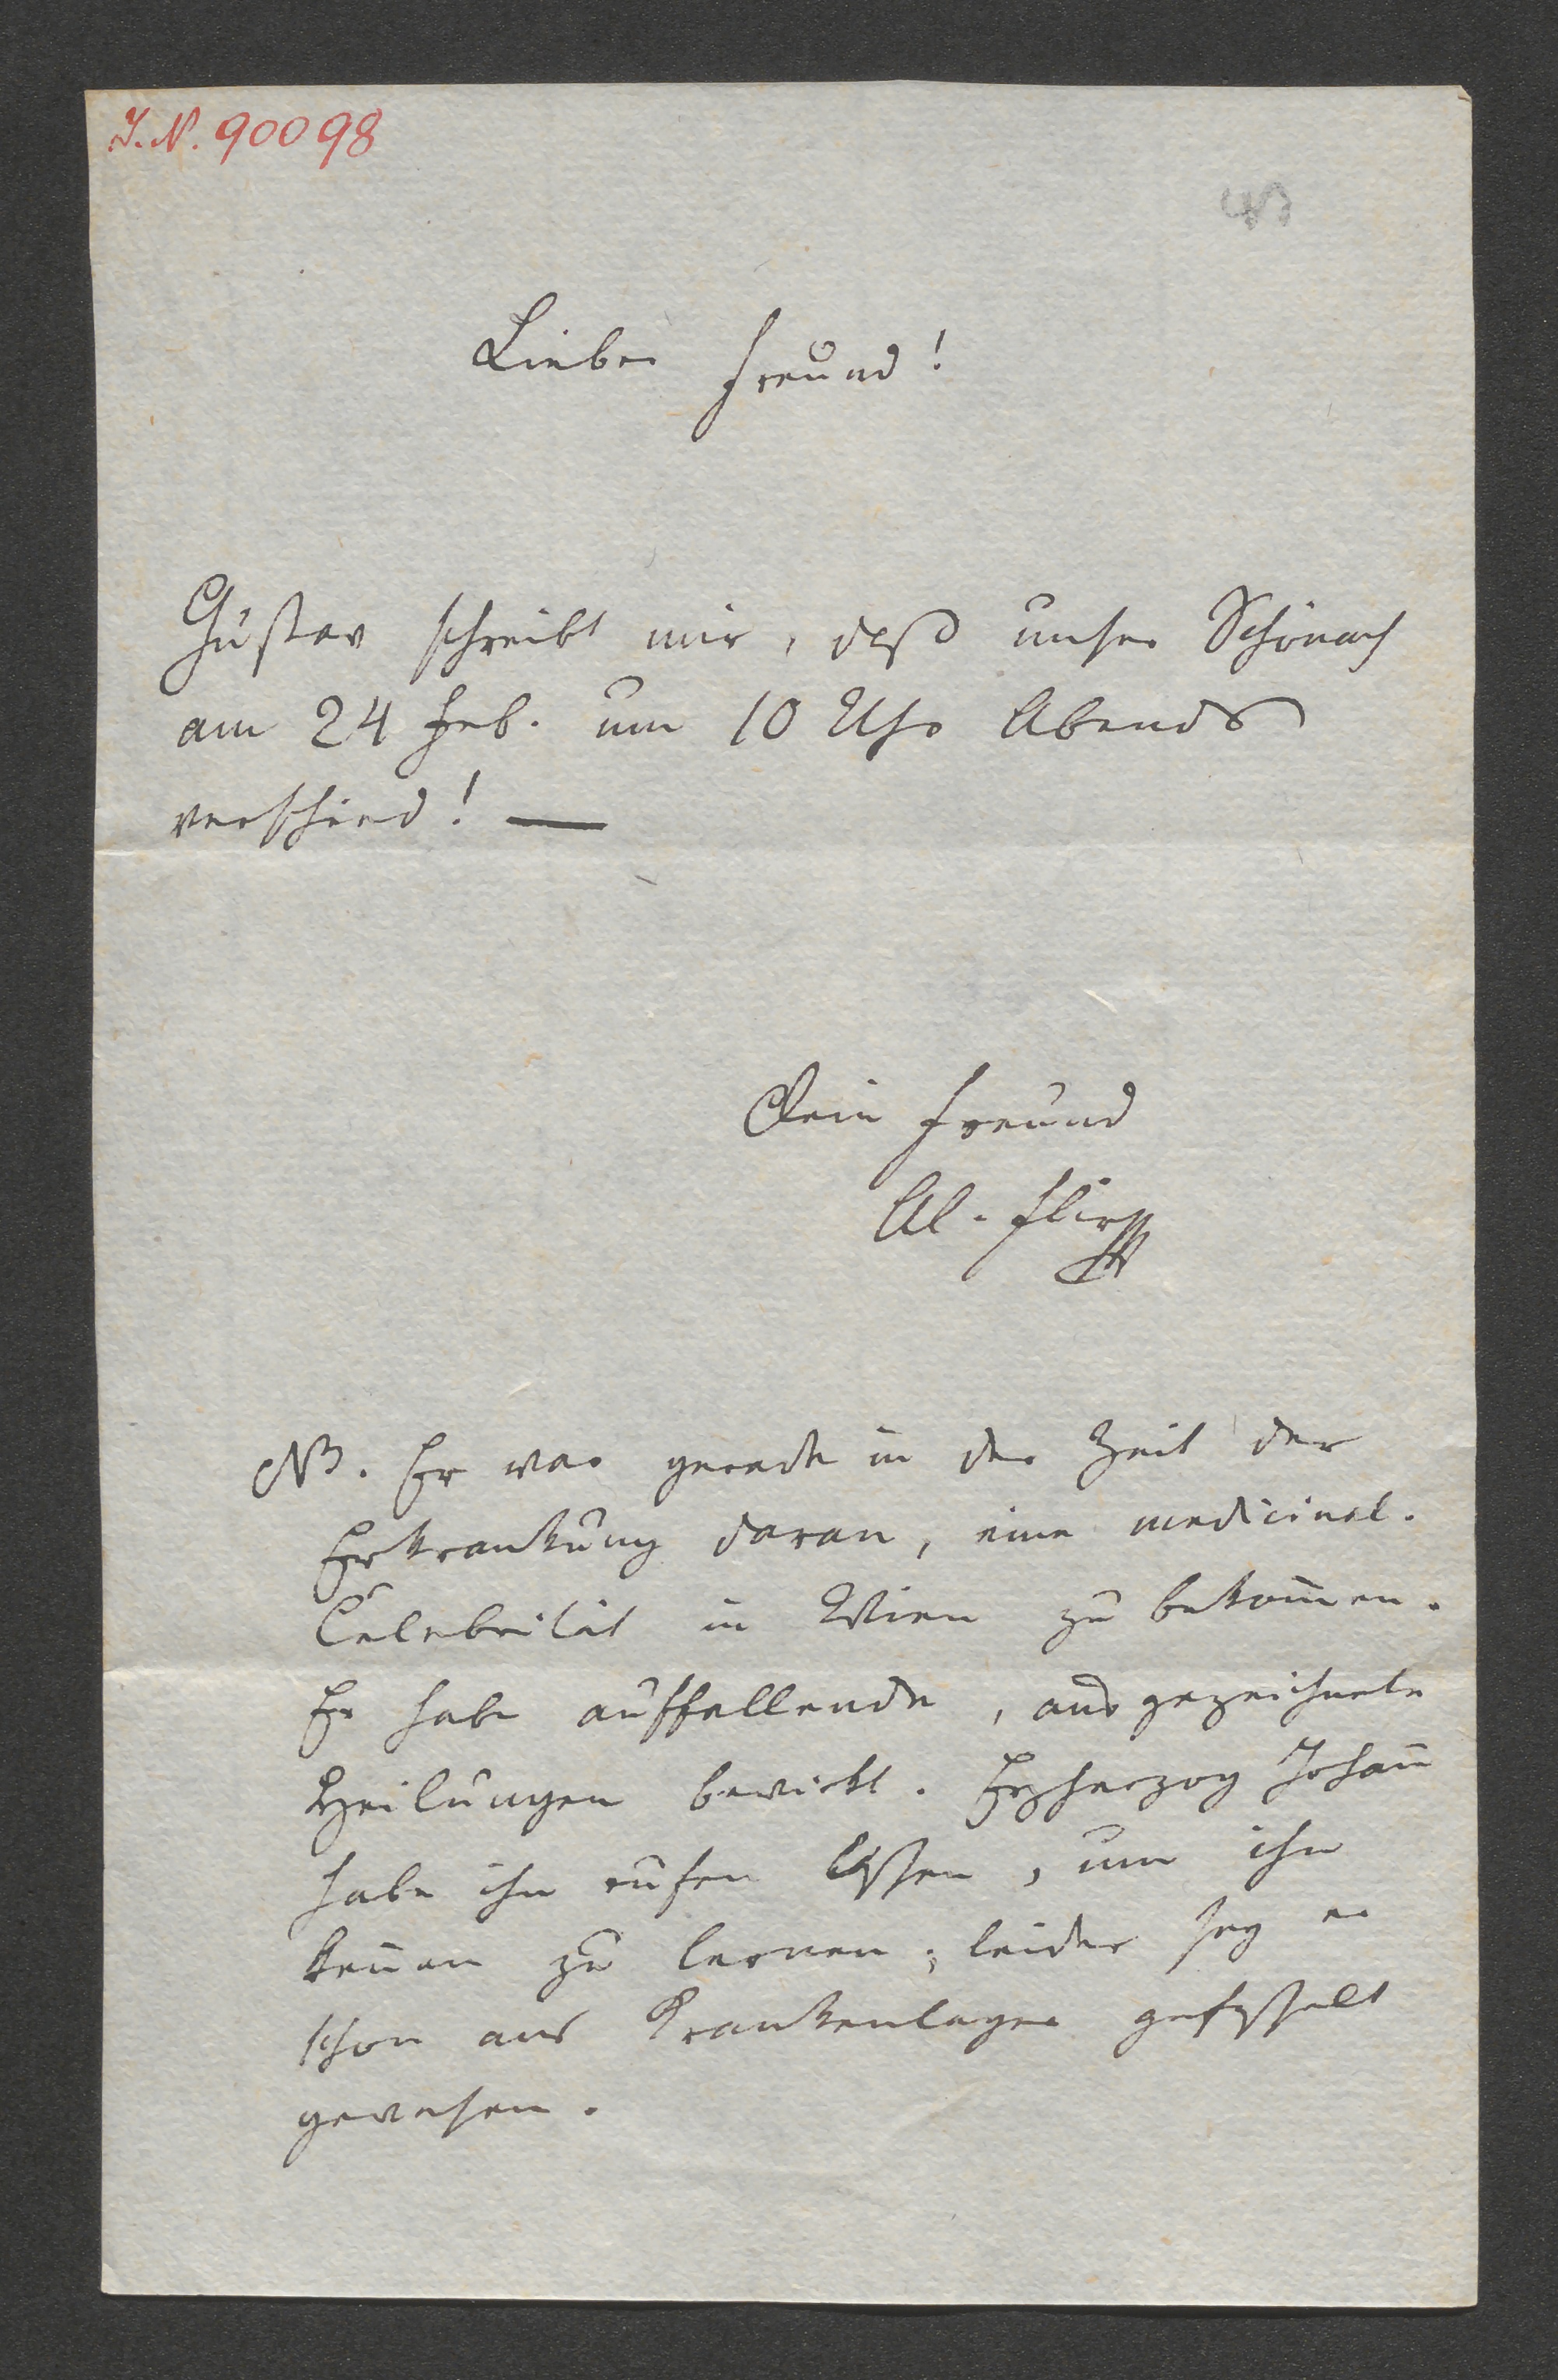 I. N. 90098
Lieber Freund!
Gustav schreibt mir, daß unser Schönach
am 24 Feb. um 10 Uhr Abends
verschied! —
Dein Freund
Al. Flir
NB. Er war gerade in der Zeit der
Erkrankung daran, eine medicinal.
Celebrität in Wien zu bekom̅en.
Er habe auffallende, ausgezeichnete
Heilungen bewirkt. Erzherzog Johan̅
habe ihn rufen lassen, um ihn
ken̅en zu lernen; leider sey er
schon ans Krankenlager gefesselt
gewesen.